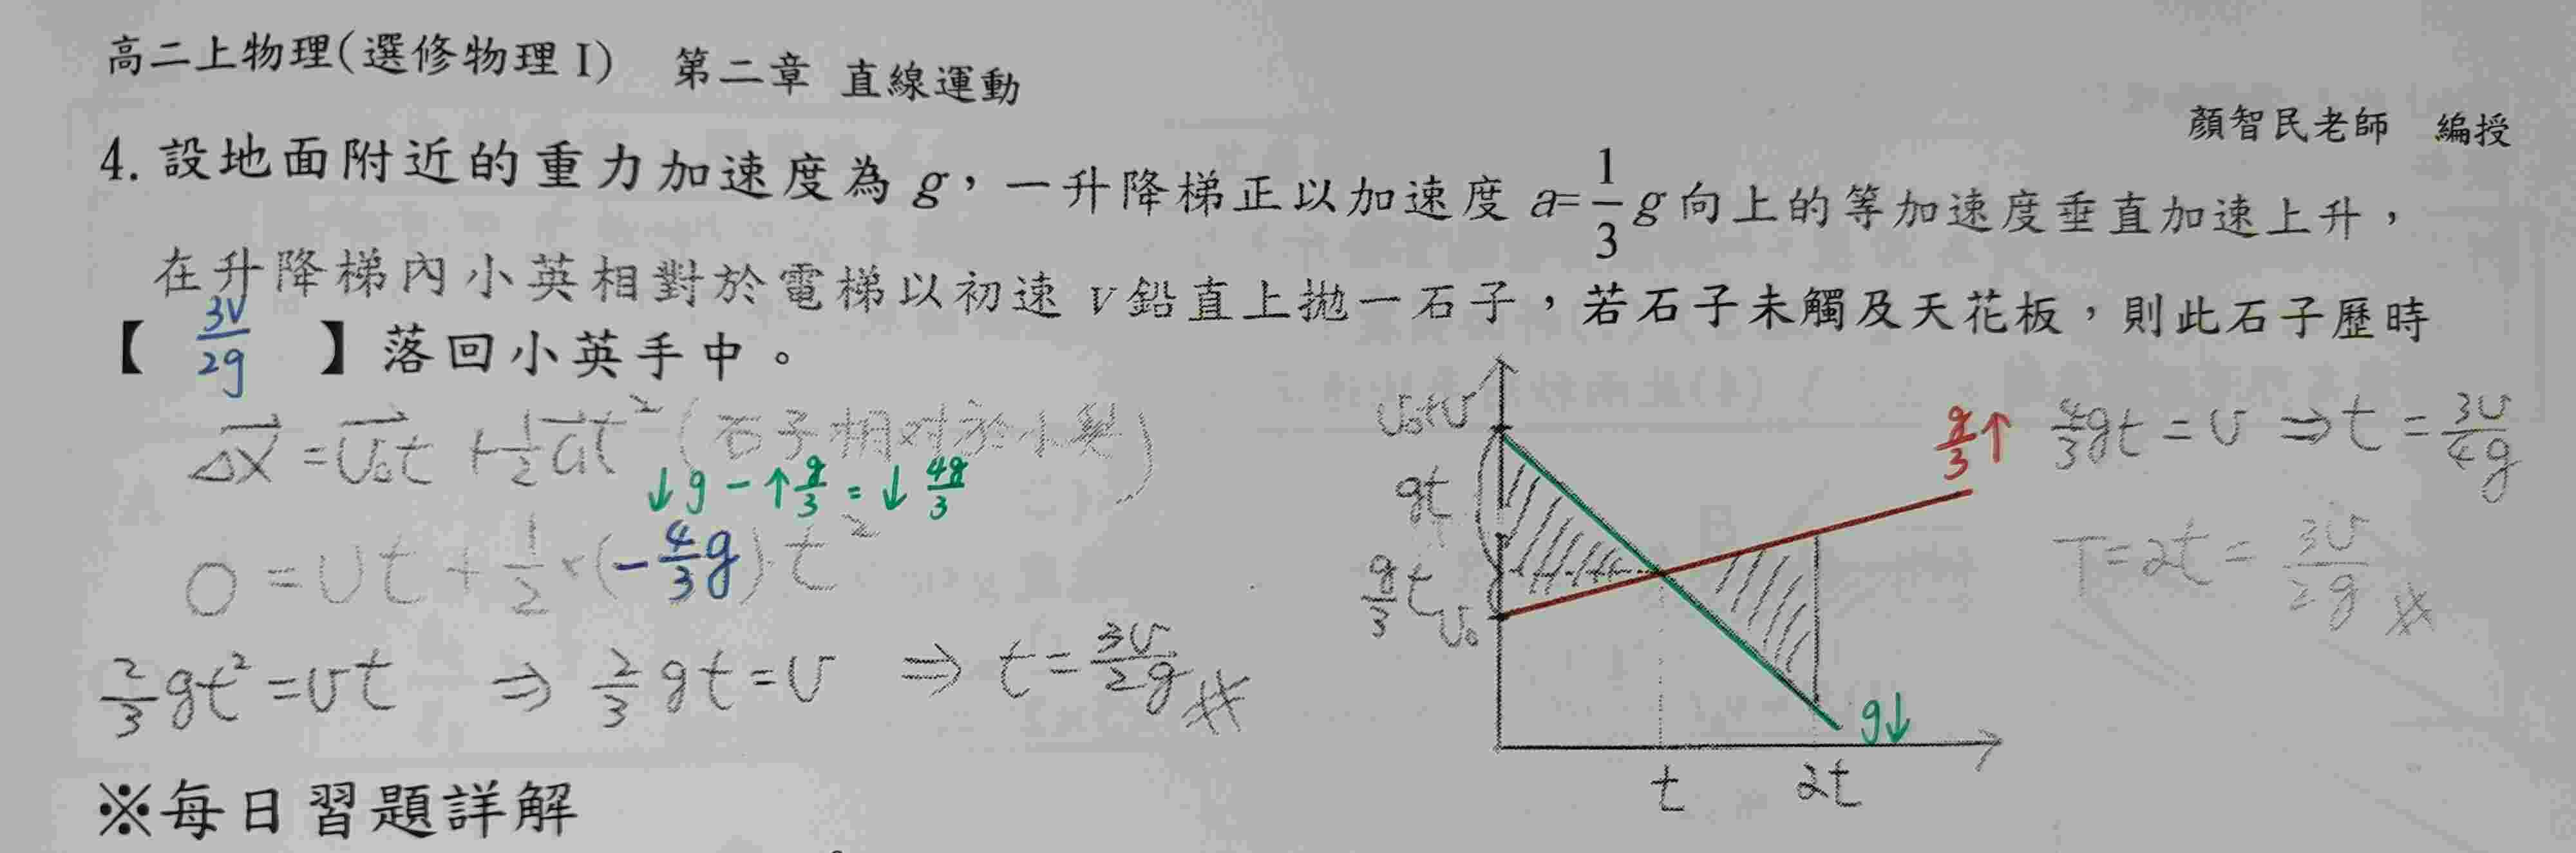 高二上物理(選修物理 I) 第二章 直線運動
顏智民老師 編授
4. 設地面附近的重力加速度為 g，一升降梯正以加速度 a=1/3 g 向上的等加速度垂直加速上升，
在升降梯內小英相對於電梯以初速 V 鉛直上拋一石子，若石子未觸及天花板，則此石子歷時
【 3V/2g 】落回小英手中。
Δx⃗ = v⃗₀t + 1/2 a⃗t² (石子相对於小英)
↓g - ↑g/3 = ↓4g/3
0 = vt + 1/2 × (-4/3 g)·t²
2/3 gt² = vt ⇒ 2/3 gt = v ⇒ t = 3v/2g
v₀+v
gt
g/3 t
v₀
g/3↑
g↓
t 2t
4/3 gt = v ⇒ t = 3v/4g
T = 2t = 3v/2g
※每日習題詳解